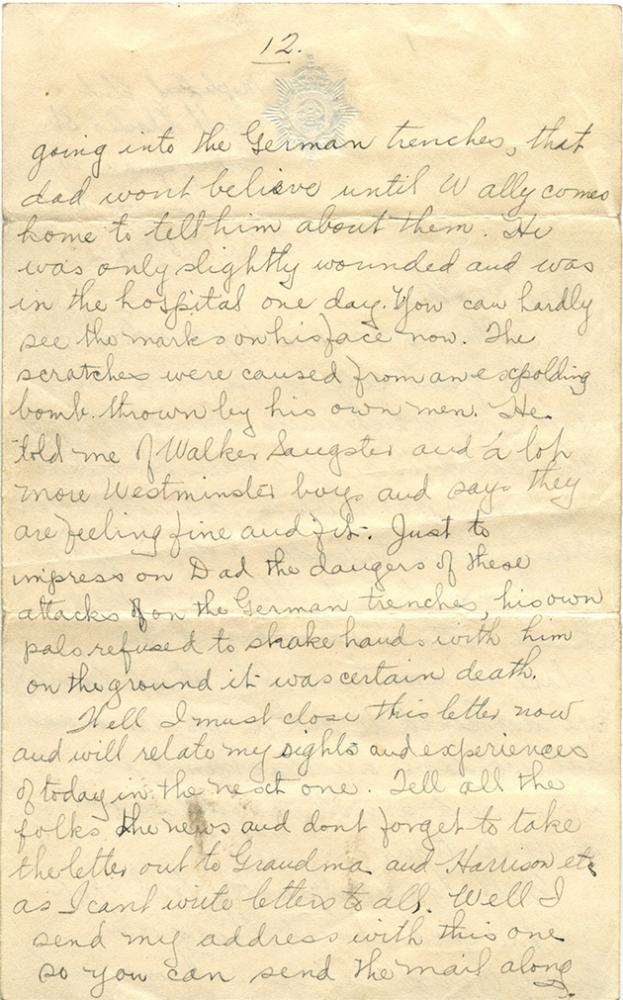 12.
going into the German trenches, that
dad wont believe until Wally comes
home to tell him about them. He
was only slightly wounded and was
in the hospital one day. You can hardly
see the marks on his face now. The
scratches were caused from an expolding
bomb thrown by his own men. He
told me of Walker Sangster and a lot
more Westminster boys and says they
are feeling fine and fit. Just to
impress on Dad the dangers of these
attacks on the German trenches, his own
pals refused to shake hands with him
on the ground it was certain death.
Well I must close this letter now
and will relate my sights and experiences
of today in the next one. Tell all the
folks the news and dont forget to take
the letter out to Grandma and Harrison etc
as I cant write letters to all. Well I
send my address with this one
so you can send the mail along.